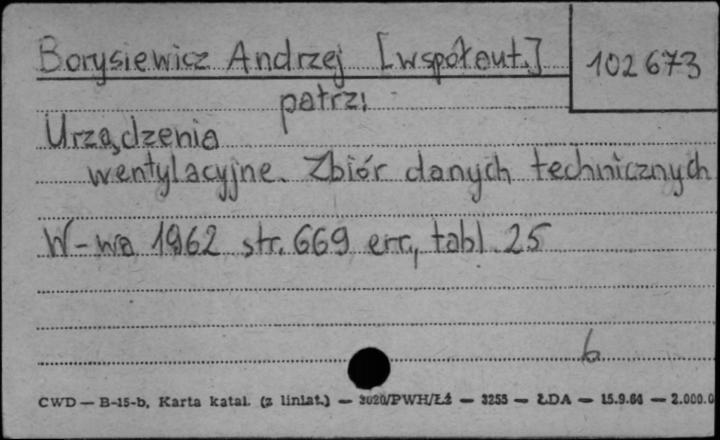 Borysiewicz Andrzej [współaut.]
102673
patrz:
Urządzenia
wentylacyjne. Zbiór danych technicznych
W-wa 1962 str. 669 err., tabl. 25
6
CWD — B-15-b, Karta katal. (z liniat.) — 3020/PWH/Łź — 3255 — ŁDA — 15.9.64 — 2.000.0